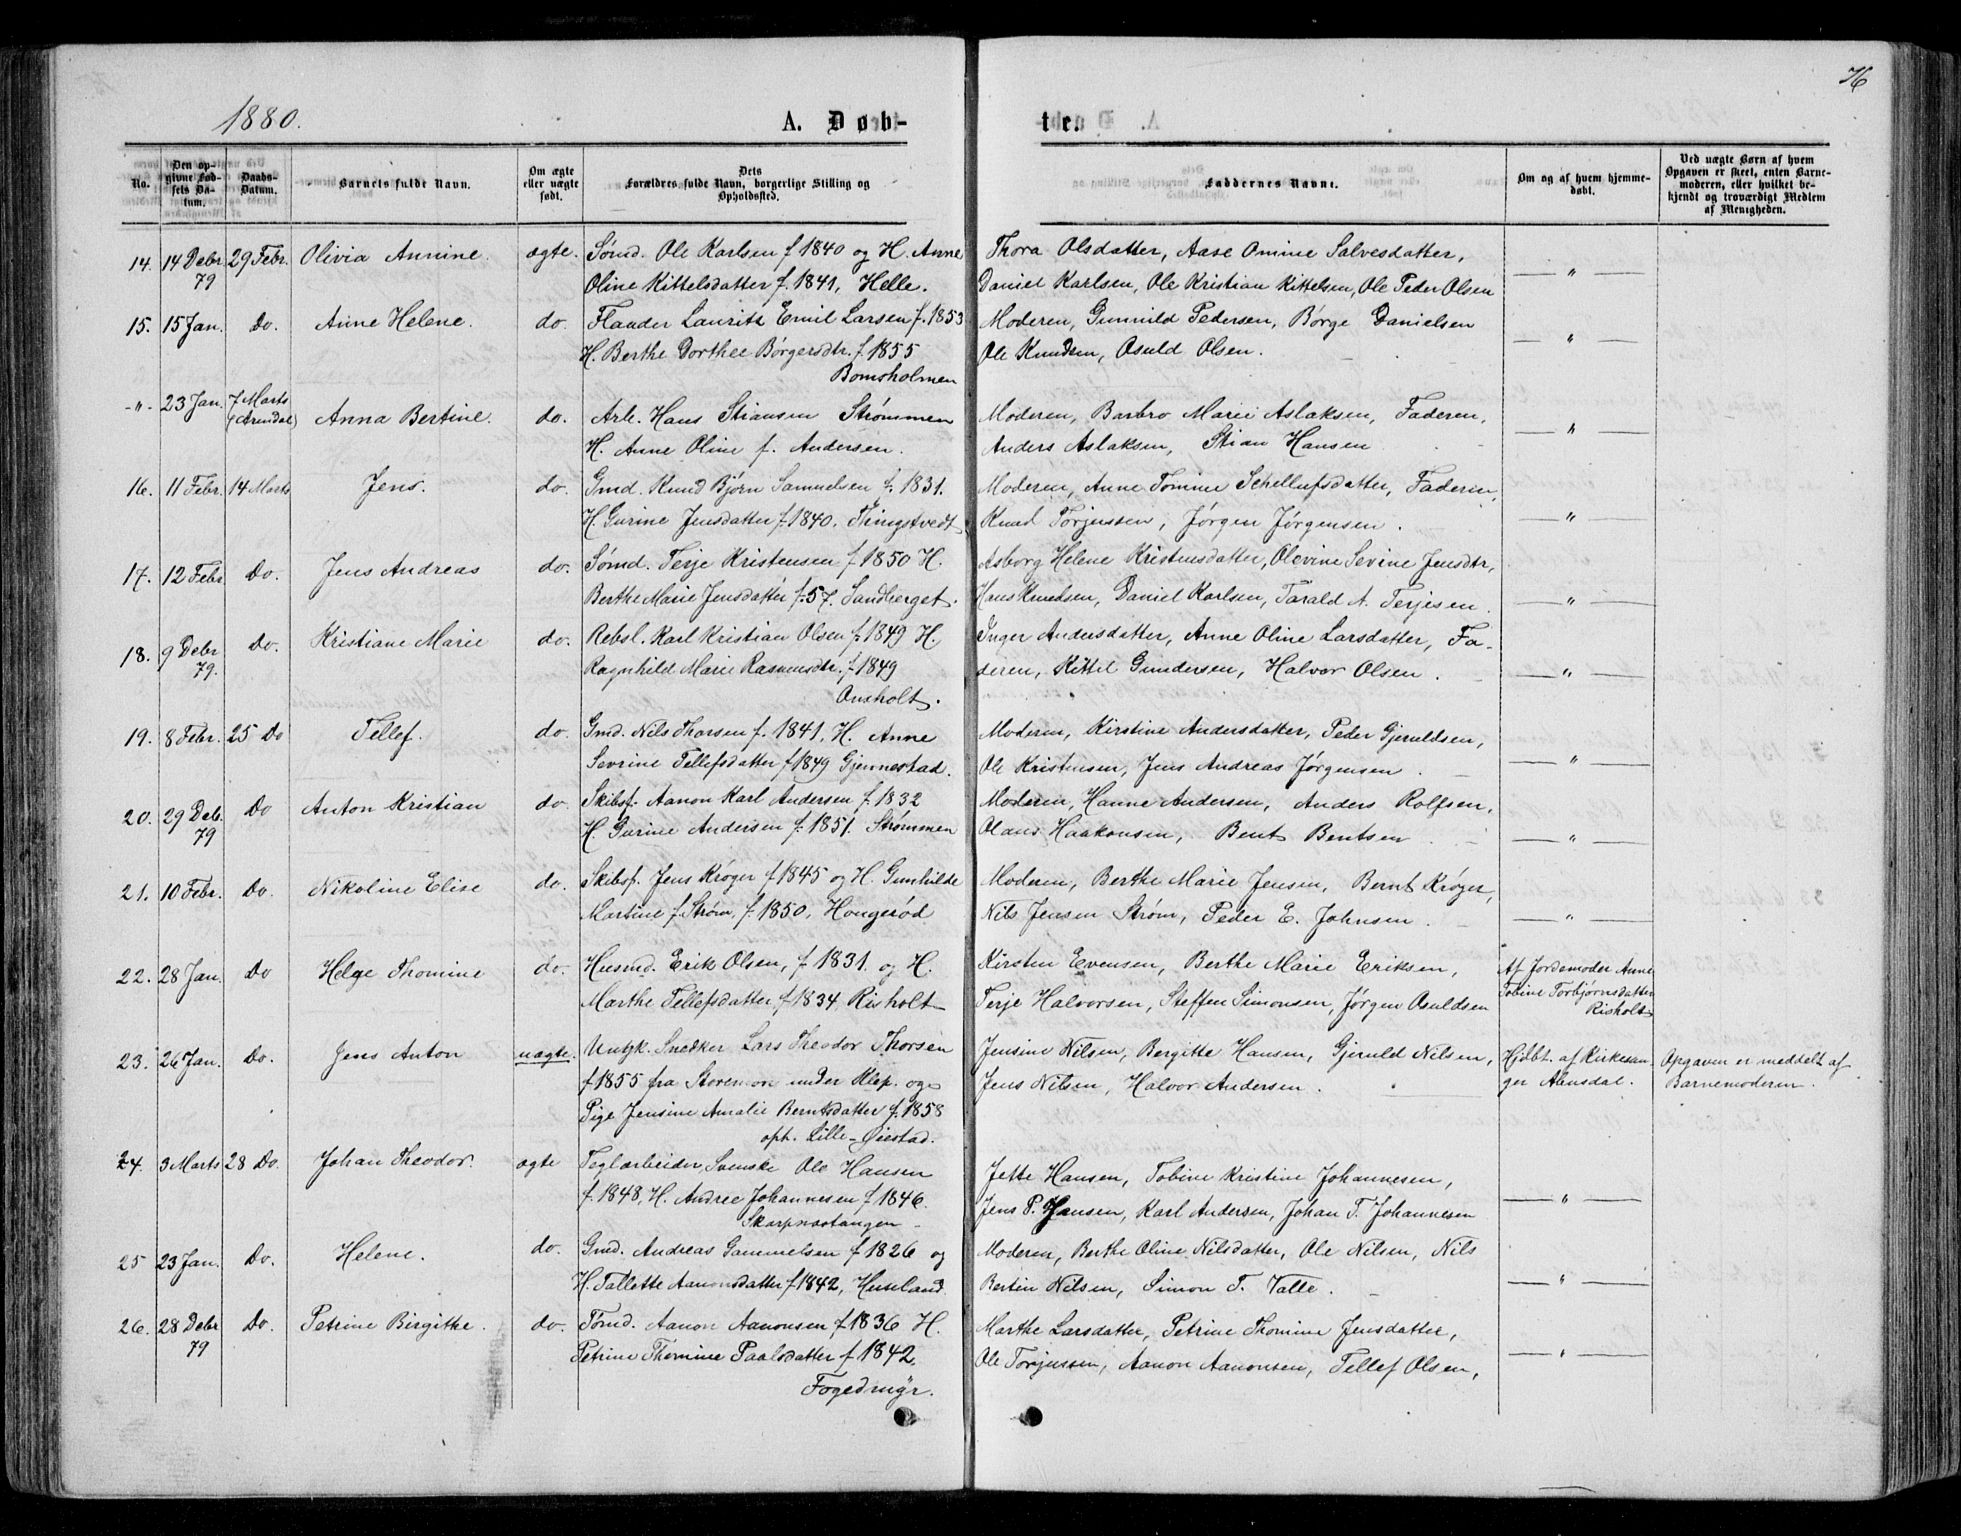 76
1880.
A. Døb-
te.
No.
Den op-
givne Fød-
sels Da-
tum.
Daabs-
Datum.
Barnets fulde Navn.
Om ægte
eller uægte
født.
Dets
Forældres fulde Navn, borgerlige Stilling og
Opholdssted.
Faddernes Navne.
Om og af hvem hjemme-
døbt.
Ved uægte Børn af hvem
Opgaven er skeet, enten Barne-
moderen, eller hvilket be-
kjendt og troværdigt Medlem
af Menigheden.
14. 14 Debr 29 Febr. Olivia Annine. ægte. Sømd. Ole Karlsen f 1840 og H. Anne Thora Olsdatter, Aase Omine Salvesdatter,
79 Oline Kittelsdatter f. 1841, Helle. Daniel Karlsen, Ole Kristian Kittelsen, Ole Peder Olsen — " —
15. 15 Jan. Do. Anne Helene. do. Flauder Lauritz Emil Larsen f. 1853 Moderen, Gunnild Pedersen, Børge Danielsen
H. Berthe Dorthee Børgersdtr. f. 1855 Ole Knudsen, Osuld Olsen. — " —
Bomsholmen
-"- 23 Jan. 7 Marts Anna Bertine. do. Arb. Hans Stiansen Strømmen Moderen, Barbro Marie Aslaksen, Faderen,
(Arendal) H. Anne Oline f. Andersen. Anders Aslaksen, Stian Hansen — " —
16. 11 Febr. 14 Marts Jens. do. Gmd. Knud Bjørn Samuelsen f. 1831. Moderen, Anne Tomine Schellufsdatter, Faderen,
H. Gurine Jensdatter f. 1840. Tingstvedt Knud Torjussen, Jørgen Jørgensen. — " —
17. 12 Febr Do. Jens Andreas do. Sømd. Terje Kristensen f 1850 H. Asborg Helene Kristensdatter, Olevine Sevine Jensdtr,
Berthe Marie Jensdatter f. 57. Sandberget. Hans Knudsen, Daniel Karlsen, Tarald A. Terjesen. — " —
18. 9 Debr Do. Kristiane Marie do. Rebsl. Karl Kristian Olsen f. 1849 H. Inger Andersdatter, Anne Oline Larsdatter, Fa-
79. Ragnhild Marie Rasmusdtr. f. 1849 deren, Kittel Gundersen, Halvor Olsen. — " —
Onsholt.
19. 8 Febr. 25 Do Tellef. do. Gmd. Nils Thorsen f. 1841, H. Anne Moderen, Kirstine Andersdatter, Peder Gjeruldsen,
Sevrine Tellefsdatter f 1849 Gjennestad. Ole Kristensen, Jens Andreas Jørgensen. — " —
20. 29 Deb. Do Anton Kristian do. Skibsf. Aanon Karl Andersen f. 1832 Moderen, Hanne Andersen, Anders Rolfsen,
79 H. Gurine Andersen f. 1851. Strømmen Olaus Haakonsen, Bent Bentsen — " —
21. 10 Febr. Do. Nikoline Elise do. Skibsf. Jens Krøger f 1845 og H. Gunhilde Moderen, Berthe Marie Jensen, Bernt Krøger,
Martine f. Strøm, f. 1850, Hougerød Nils Jensen Strøm, Peder E. Johnsen. — " —
22. 28 Jan. Do Helge Thomine do. Husmd. Erik Olsen, f 1831. og H. Kirsten Evensen, Berthe Marie Eriksen, Af Jordemoder Anne
Marthe Tellefsdatter f 1834 Risholt Terje Halvorsen, Steffen Simonsen, Jørgen Osuldsen Tobine Torbjørnsdatter
Risholt
23. 26 Jan. Do. Jens Anton uægte. Ungk. Snedker Lars Theodor Thorsen Jensine Nilsen, Bergitte Hansen, Gjeruld Nilsen, Hjdbt. af Kirkesan- Opgaven er meddelt af
f 1855 fra Storemon under Klep. og Jens Nilsen, Halvor Andersen. ger Alensdal. Barnemoderen.
Pige Jensine Amalie Berntsdatter f. 1858
oph. Lille-Øiestad.
24. 3 Marts 28 Do. Johan Theodor. ægte Teglarbeider, Svenske Ole Hansen Jette Hansen, Tobine Kristine Johannesen,
f. 1848, H. Andree Johannesen f 1846. Jens P. Hansen, Karl Andersen, Johan T. Johannesen — " —
Skarpnestangen
25 23 Jan. Do. Helene. do. Gmd. Andreas Gammelsen f 1826 og Moderen, Berthe Oline Nilsdatter, Ole Nilsen, Nils
H. Tallette Aanonsdatter f 1842, Huseland Bertin Nilsen, Simon T. Valle. — " —
26. 28 Debr Do. Petrine Birgithe. do. Tømd. Aanon Aanonsen f 1836 H. Marthe Larsdatter, Petrine Thomine Jensdatter,
79 Petrine Thomine Paalsdatter f 1842, Ole Torjussen, Aanon Aanonsen, Tellef Olsen, — " —
Fogedmyr.